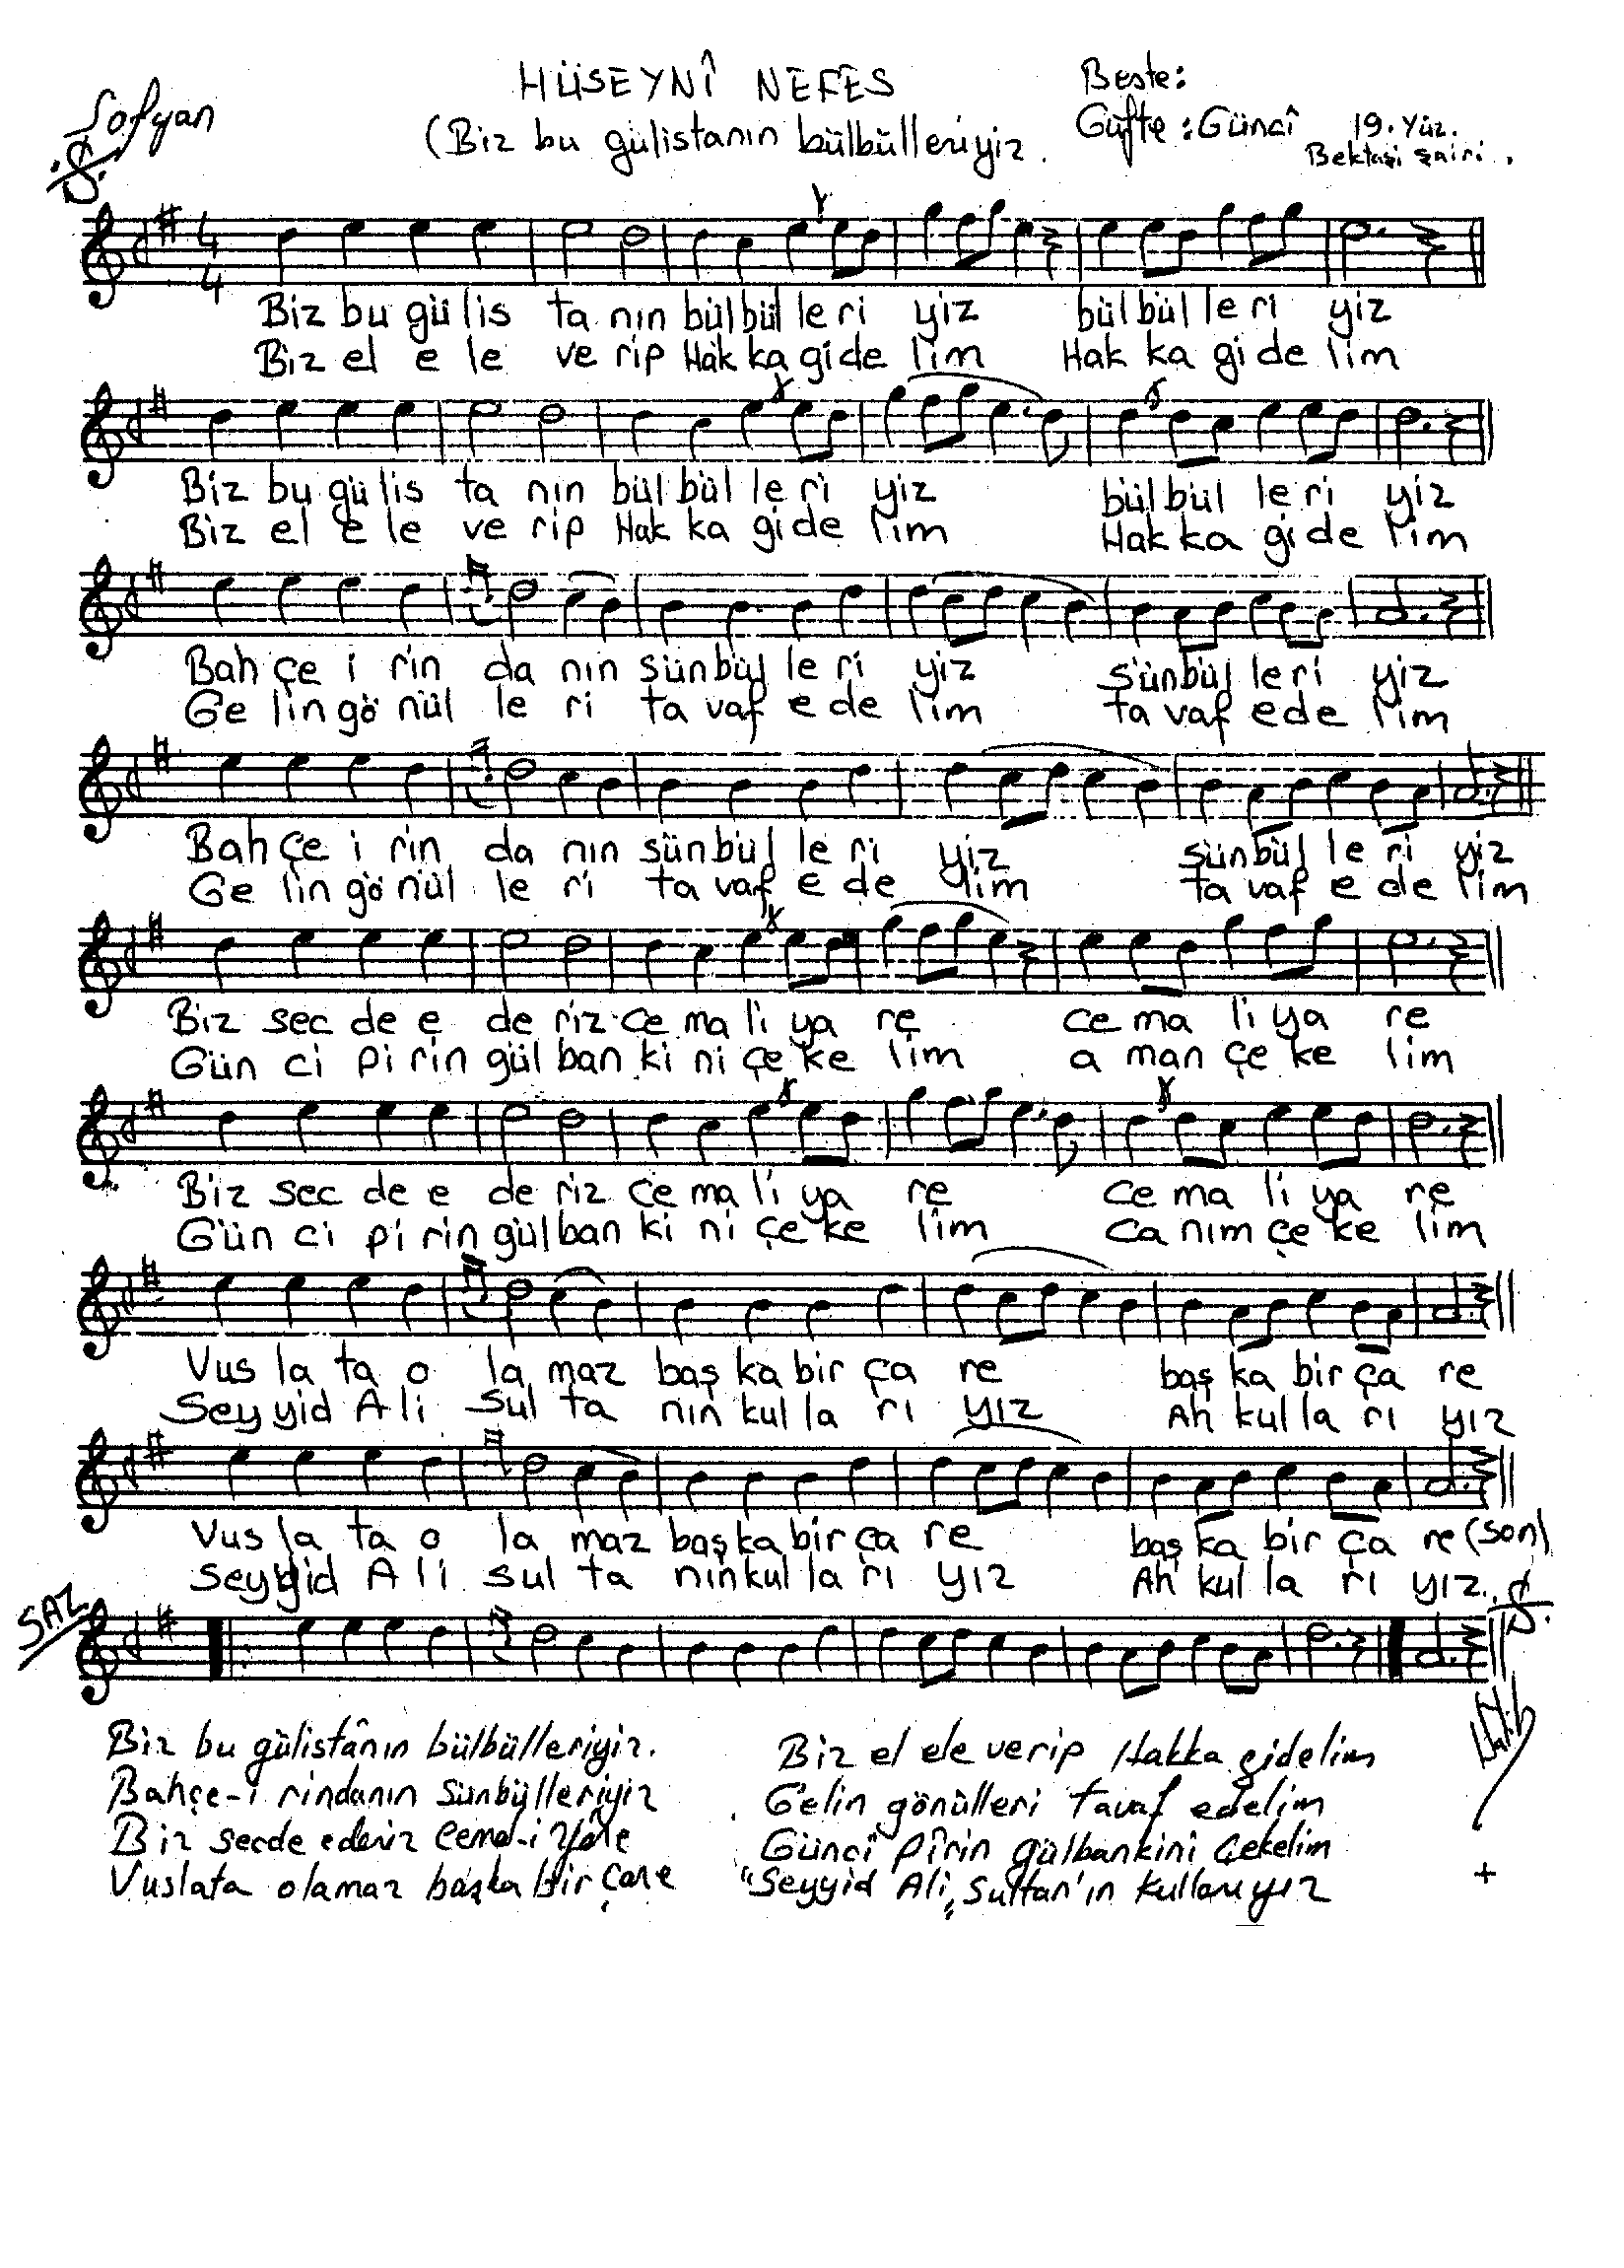 Sofyan
HÜSEYNÎ NEFES
(Biz bu gülistanın bülbülleriyiz.
Beste:
Güfte: Güncî 19. yüz.
Bektaşi şairi.
4
4
Biz bu gü lis ta nın bül bül le ri yiz bül bül le ri yiz
Biz el e le ve rip Hak ka gi de lim Hak ka gi de lim
Biz bu gü lis ta nın bül bül le ri yiz bül bül le ri yiz
Biz el e le ve rip Hak ka gi de lim Hak ka gi de lim
Bah çe i rin da nın sün bül le ri yiz sün bül le ri yiz
Ge lin gö nül le ri ta vaf e de lim ta vaf e de lim
Bah çe i rin da nın sün bül le ri yiz sün bül le ri yiz
Ge lin gö nül le ri ta vaf e de lim ta vaf e de lim
Biz sec de e de riz ce ma li ya re ce ma li ya re
Gün ci pi rin gül ban ki ni çe ke lim a man çe ke lim
Biz sec de e de riz ce ma li ya re ce ma li ya re
Gün ci pi rin gül ban ki ni çe ke lim ca nım çe ke lim
Vus la ta o la maz baş ka bir ça re baş ka bir ça re
Sey yid A li sul ta nın kul la rı yız Ah kul la rı yız
Vus la ta o la maz baş ka bir ça re baş ka bir ça re (son)
Sey yid A li sul ta nın kul la rı yız Ah kul la rı yız.
SAZ
Biz bu gülistânın bülbülleriyiz.
Bahçe-i rindanın sünbülleriyiz
Biz secde ederiz Cemal-i Yâre
Vuslata olamaz başka bir çare
Biz el ele verip Hakka gidelim
Gelin gönülleri tavaf edelim
Güncî Pîrin gülbankini çekelim
"Seyyid Ali" Sultan'ın kullarıyız